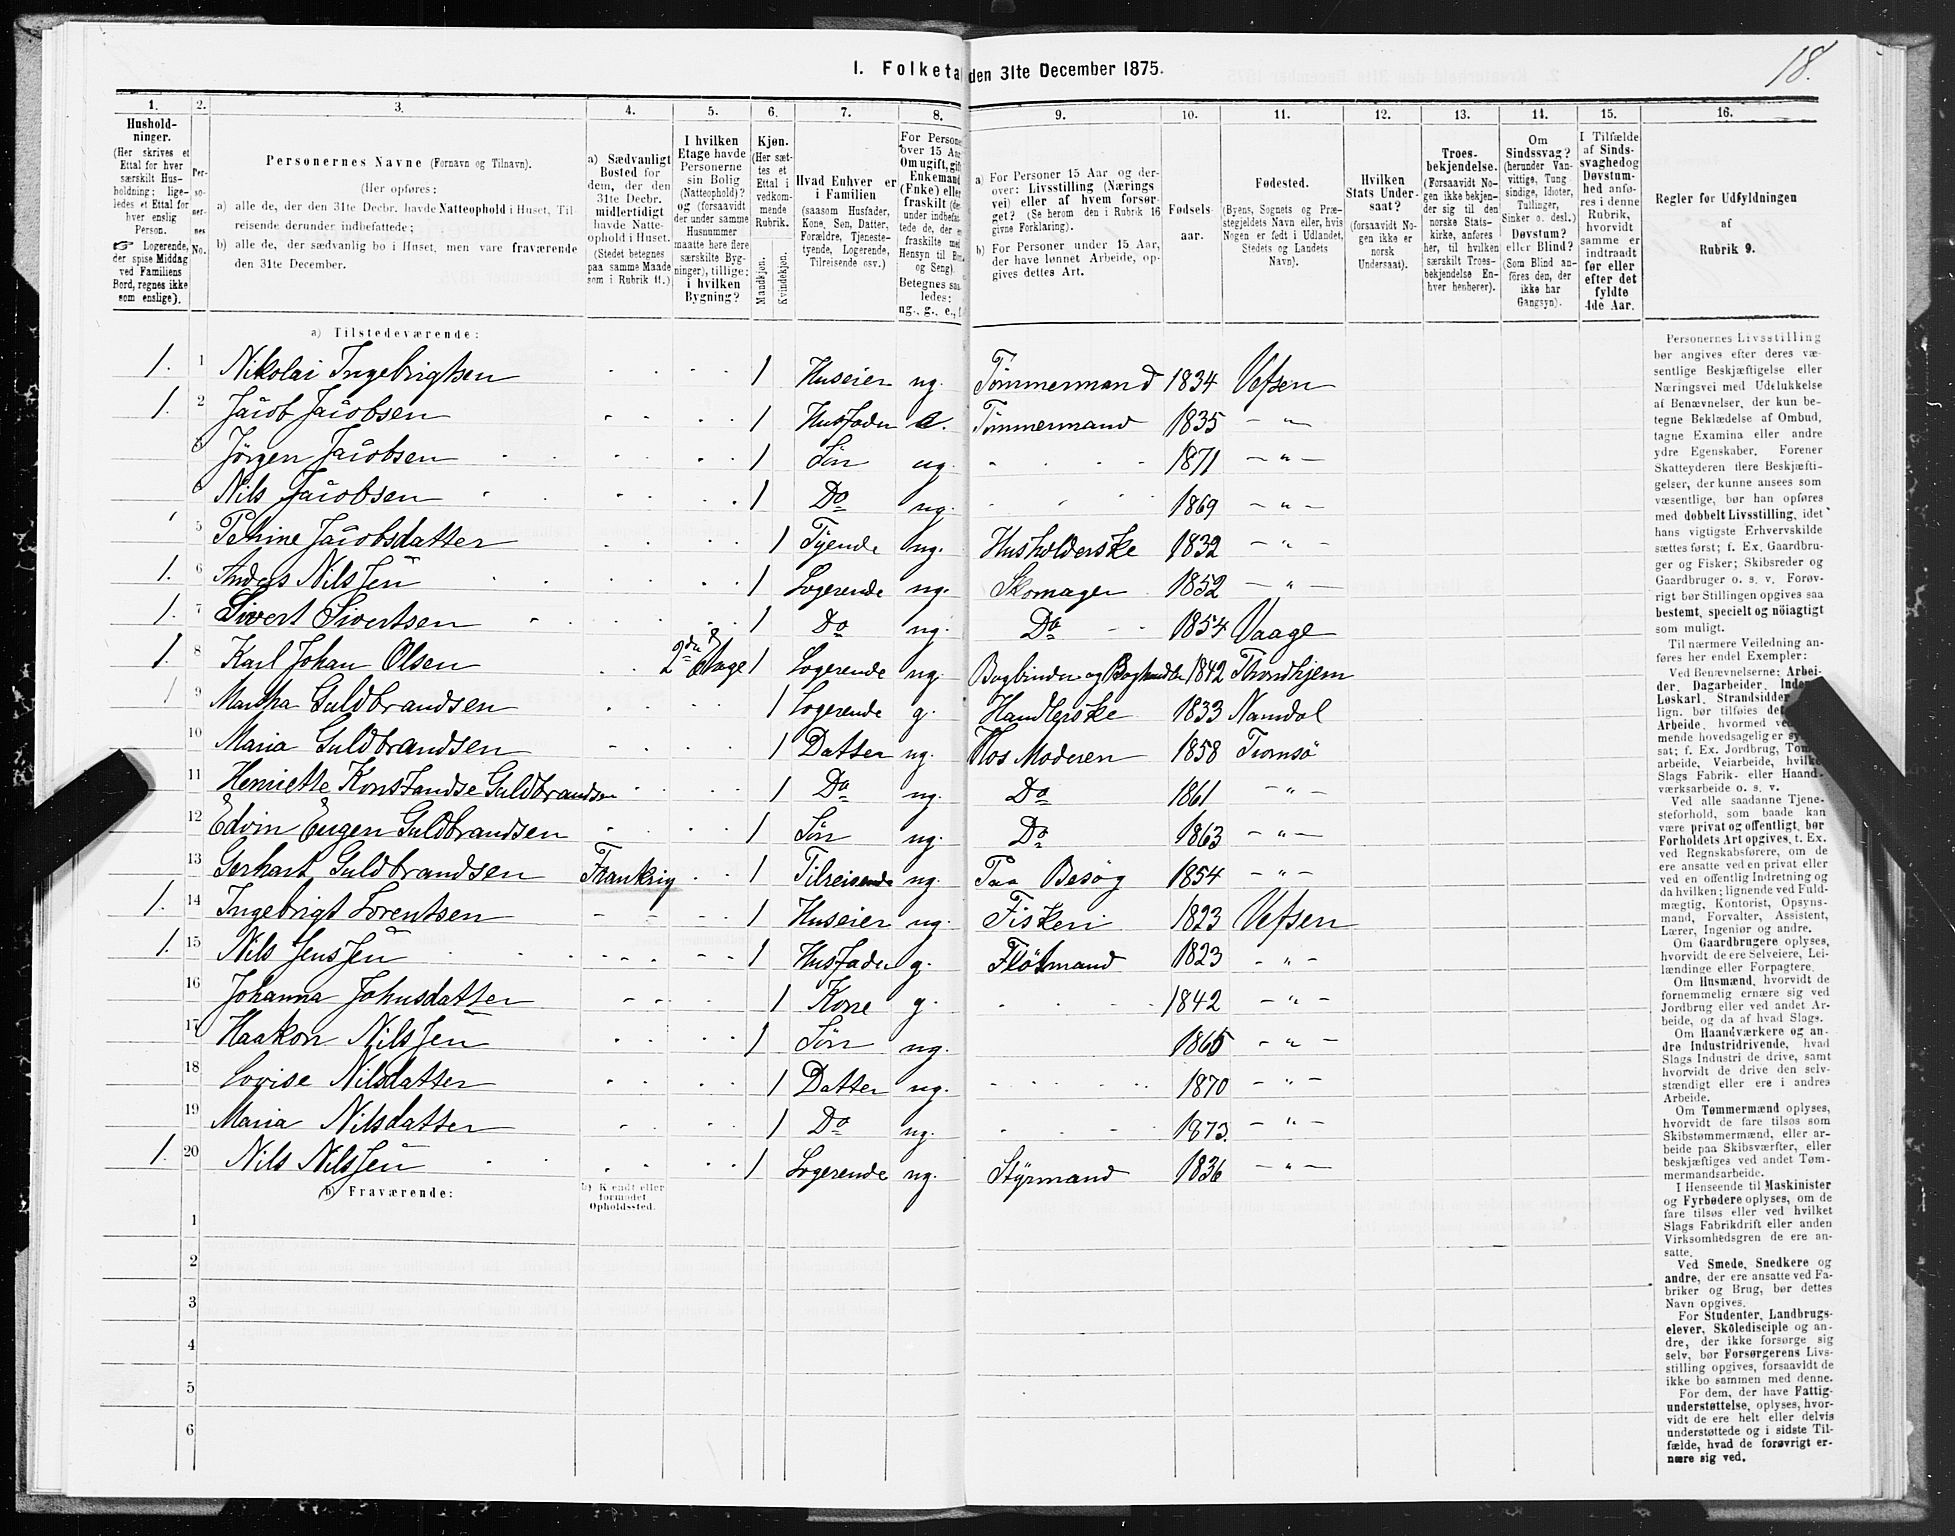 18.
1. Folketa den 31te December 1875.
1. 2. 3. 4. 5. 6. 7. 8. 9. 10. 11. 12. 13. 14. 15. 16.
Hushold-
ninger.
(Her skrives et
Ettal for hver
særskilt Hus-
holdning; lige-
ledes et Ettal for
hver enslig
Person.
☞ Logerende,
der spise Middag
ved Familiens
Bord, regnes ikke
som enslige).
Per-
so-
ner-
nes
No.
Personernes Navne (Fornavn og Tilnavn).
(Her opføres:
a) alle de, der den 31te Decbr. havde Natteophold i Huset, Til-
reisende derunder indbefattede;
b) alle de, der sædvanlig bo i Huset, men vare fraværende
den 31te December.
a) Sædvanligt
Bosted for
dem, der den
31te Decbr.
midlertidigt
havde Natte-
ophold i Huset.
(Stedet betegnes
paa samme Maade
som i Rubrik 11.)
I hvilken
Etage havde
Personerne
sin Bolig
(Natteophold)?
og (forsaavidt
der under samme
Husnummer
maatte høre flere
særskilte Byg-
ninger), tillige:
i hvilken
Bygning?
Kjøn.
(Her sæt-
tes et
Ettal i
vedkom-
mende
Rubrik.
Mandkjøn.
Kvindekjøn.
Hvad Enhver er
i Familien
(saasom Husfader,
Kone, Søn, Datter,
Forældre, Tjeneste-
tyende, Logerende,
Tilreisende osv.)
For Persone
over 15 Aa
Om ugift, gif
Enkemand
(Enke) elle
fraskilt (de
under indbefat-
tede de, der e
fraskilte med
Hensyn til Bo
og Seng).
Betegnes saa
ledes:
ug., g., e., f.
a) For Personer 15 Aar og der-
over: Livsstilling (Nærings
vei) eller af hvem forsør-
get? (Se herom den i Rubrik 16
givne Forklaring).
b) For Personer under 15 Aar,
der have lønnet Arbeide, op-
gives dettes Art.
Fødsels-
aar.
Fødested.
(Byens, Sognets og Præ-
stegjeldets Navn eller, hvis
Nogen er født i Udlandet,
Stedets og Landets
Navn).
Hvilken
Stats Under-
saat?
(forsaavidt No-
gen ikke er
norsk
Undersaat).
Troes-
bekjendelse.
(Forsaavidt No-
gen ikke bekjen-
der sig til den
norske Stats-
kirke, anføres
her, til hvilken
særskilt Troes-
bekjendelse En-
hver henhører).
Om
Sindssvag?
(herunder Van-
vittige, Tung
sindige, Idioter,
Tullinger,
Sinker o. desl.)
Døvstum?
eller Blind?
(Som Blind an-
føres den, der
ikke har
Gangsyn).
I Tilfælde
af Sinds-
svaghed og
Døvstum-
hed anfø-
res i denne
Rubrik,
hvorvidt
samme er
indtraadt
før eller
efter det
fyldte
4de Aar.
Regler før Udfyldningen
af
Rubrik 9.
a) Tilstedeværende:
1. 1 Nikolai Ingebrigtsen 1 Huseier ug. Tømmermand 1834 Vefsen
1. 2 Jacob Jacobsen 1 Husfader e. Tømmermand 1835 — „ —
3 Jörgen Jacobsen 1 Sön ug. 1871 — „ —
Nils Jacobsen 1 Do ug. 1869 — „ —
5 Petrine Jacobsdatter 1 Tyende ug. Husholderske 1832 — „ —
1. 6 Anders Nilssen 1 Logerende ug. Skomager 1852 — „ —
1. 7 Sivert Sivertsen 1 Do ug. Do 1854 Vaage
1. 8 Karl Johan Olsen 2den Etage 1 Logerende ug. Bogbinder og Boghandler 1842 Throndhjem
1 9 Martha Guldbrandsen 1 Logerende g. Handlerske 1833 Namdal
10 Maria Guldbrandsen 1 Datter ug. Hos Moderen 1858 Tromsö
11 Henriette Konstandse Guldbrandsen 1 Do ug. Do 1861 — „ —
12 Edvin Eugen Guldbrandsen 1 Sön ug. Do 1863 — „ —
13 Gerhart Guldbrandsen Frankrig 1 Tilreisende ug. Paa Besög 1854 — „ —
1. 14 Ingebrigt Lorentsen 1 Huseier ug. Fiskeri 1823 Vefsen
1. 15 Nils Jenssen 1 Husfader g. Flötmand 1823 — „ —
16 Johanna Johnsdatter 1 Kone g. 1842 — „ —
17 Haakon Nilssen 1 Sön ug. 1865 — „ —
18 Lovise Nilsdatter 1 Datter ug. 1870 — „ —
19 Maria Nilsdatter 1 Do ug. 1873. — „ —
1. 20 Nils Nilssen 1 Logerende ug. Styrmand 1836 — „ —
b) Fraværende:
b) Kjendt eller
formodet
Opholdssted.
1
2
3
4
5
6
Personernes Livsstilling
bør angives efter deres væ-
sentlige Beskjæftigelse eller
Næringsvei med Udelukkelse
af Benævnelser, der kun be-
tegne Beklædelse af Ombud,
tagne Examina eller andre
ydre Egenskaber. Forener
Skatteyderen flere Beskjæfti-
gelser, der kunne ansees som
væsentlige, bør han opføres
med dobbelt Livsstilling, idet
hans vigtigste Erhvervskilde
sættes først; f. Ex. Gaardbru-
ger og Fisker; Skibsreder og
Gaardbruger o. s. v. Forøv-
rigt bør Stillingen opgives saa
bestemt, specielt og nöiagtigt
som muligt.
Til nærmere Veiledning an-
føres her endel Exempler:
Ved Benævnelserne: Arbei-
der, Dagarbeider, Inder
Løskarl, Strandsidder
lign. bør tilføies de
Arbeide, hvormed ve
mende hovedsagelig er
sat; f. Ex. Jordbrug, Tom
arbeide, Veiarbeide, hvilke
Slags Fabrik- eller Haand-
værksarbeide o. s. v.
Ved alle saadanne Tjene-
steforhold, som baade kan
være privat og offentligt, bør
Forholdets Art opgives, t. Ex.
ved Regnskabsførere, om de
ere ansatte ved en privat eller
ved en offentlig Indretning og
da hvilken; lignende ved Fuld-
mægtig, Kontorist, Opsyns-
mand, Forvalter, Assistent,
Lærer, Ingeniør og andre.
Om Gaardbrugere oplyses,
hvorvidt de ere Selveiere, Lei-
lændinge eller Forpagtere.
Om Husmænd, hvorvidt de
fornemmelig ernære sig ved
Jordbrug eller ved andet Ar-
beide, og da af hvad Slags.
Om Haandværkere og an-
dre Industridrivende, hvad
Slags Industri de drive, samt
hvorvidt de drive den selv-
stændigt eller ere i andres
Arbeide.
Om Tømmermænd oplyses,
hvorvidt de fare tilsøs som
Skibstømmermænd, eller ar-
beide paa Skibsværfter, eller
beskjæftiges ved andet Tøm-
mermandsarbeide.
I Henseende til Maskinister
og Fyrbødere oplyses, om de
fare tilsøs eller ved hvilket
Slags Fabrikdrift eller anden
Virksomhedsgren de ere an-
satte.
Ved Smede, Snedkere og
andre, der ere ansatte ved Fa-
briker og Brug, bør dettes
Navn opgives.
For Studenter, Landbrugs-
elever, Skóledisciple og an-
dre, der ikke forsørge sig
selv, bør Forsørgerens Livs-
stilling opgives, forsaavidt de
ikke bo sammen med denne.
For dem, der have Fattig-
understøttelse, oplyses, hvor-
vidt de ere helt eller delvis
understøttede og i sidste Til-
fælde, hvad de forøvrigt er-
nære sig ved.